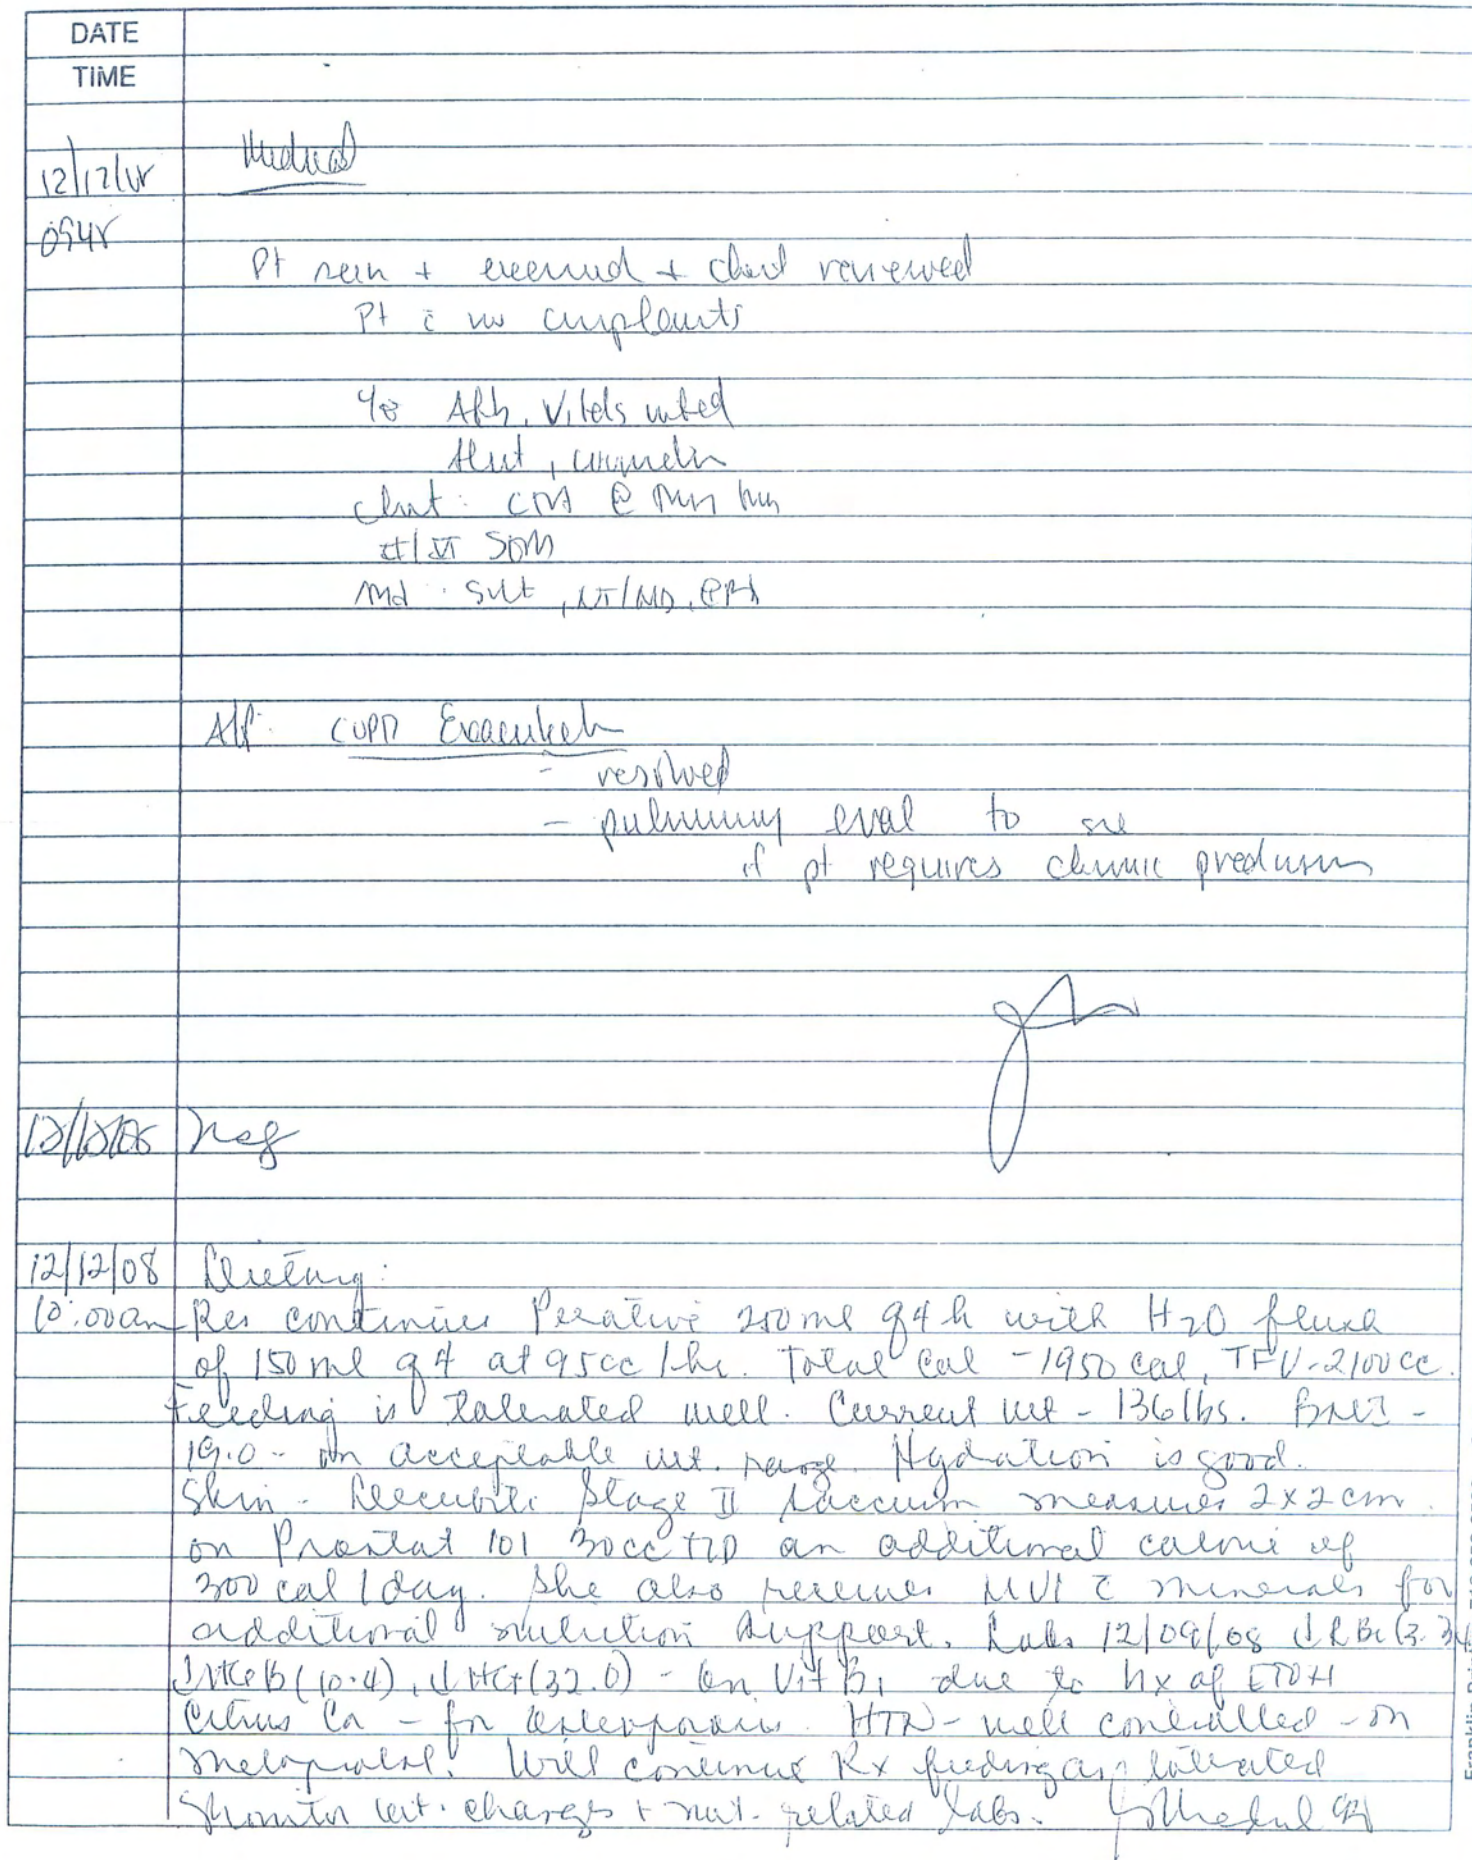 DATE
TIME
Medical
12/12/08
0948
Pt seen + examined + chart reviewed
Pt c̄ no complaints
Afb, Vitals noted
Alert, 
chest: CTA
II/VI SEM
Abd: Soft, NT/ND, ⊕BS
A/P: COPD Exacerbation
- resolved
- pulmonary eval to see
if pt requires chronic prednisone
12/12/08
12/12/08 Dietary:
10:00am Res continues Perative 250ml q4h with H20 flush
of 150ml q4 at 95cc/hr. Total Cal - 1950 cal, TFV-2100cc.
Feeding is tolerated well. Current wt - 136lbs. BMI -
19.0 - in acceptable wt. range. Hydration is good.
Skin - Decubiti Stage II saccum measures 2x2cm.
on Prostat 101 30cc TID an additional calorie of
300 cal/day. She also receives MVI c̄ minerals for
additional nutrition support. Labs 12/09/08 ↓RBC(3.34)
↓HGB(10.4), ↓HCT(32.0) - On Vit B1 due to hx of ETOH
Citrus Ca - for osteoporosis. HTN - well controlled - on
metoprolol. Will continue Rx feeding as tolerated
monitor wt. changes + nut. related labs.